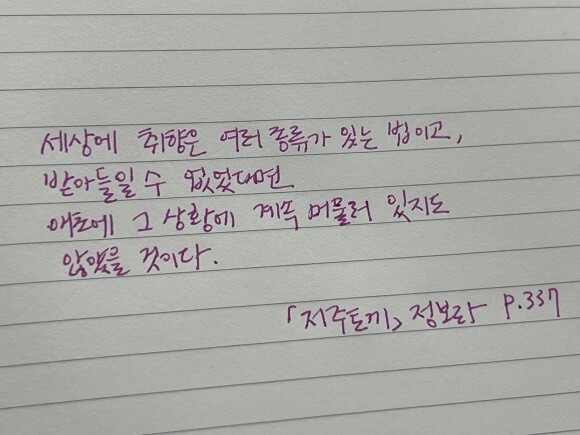 세상에 취향은 여러 종류가 있는 법이고,
받아들일 수 없었다면
애초에 그 상황에 계속 머물러 있지도
않았을 것이다.
「저주토끼」 정보라 p.337